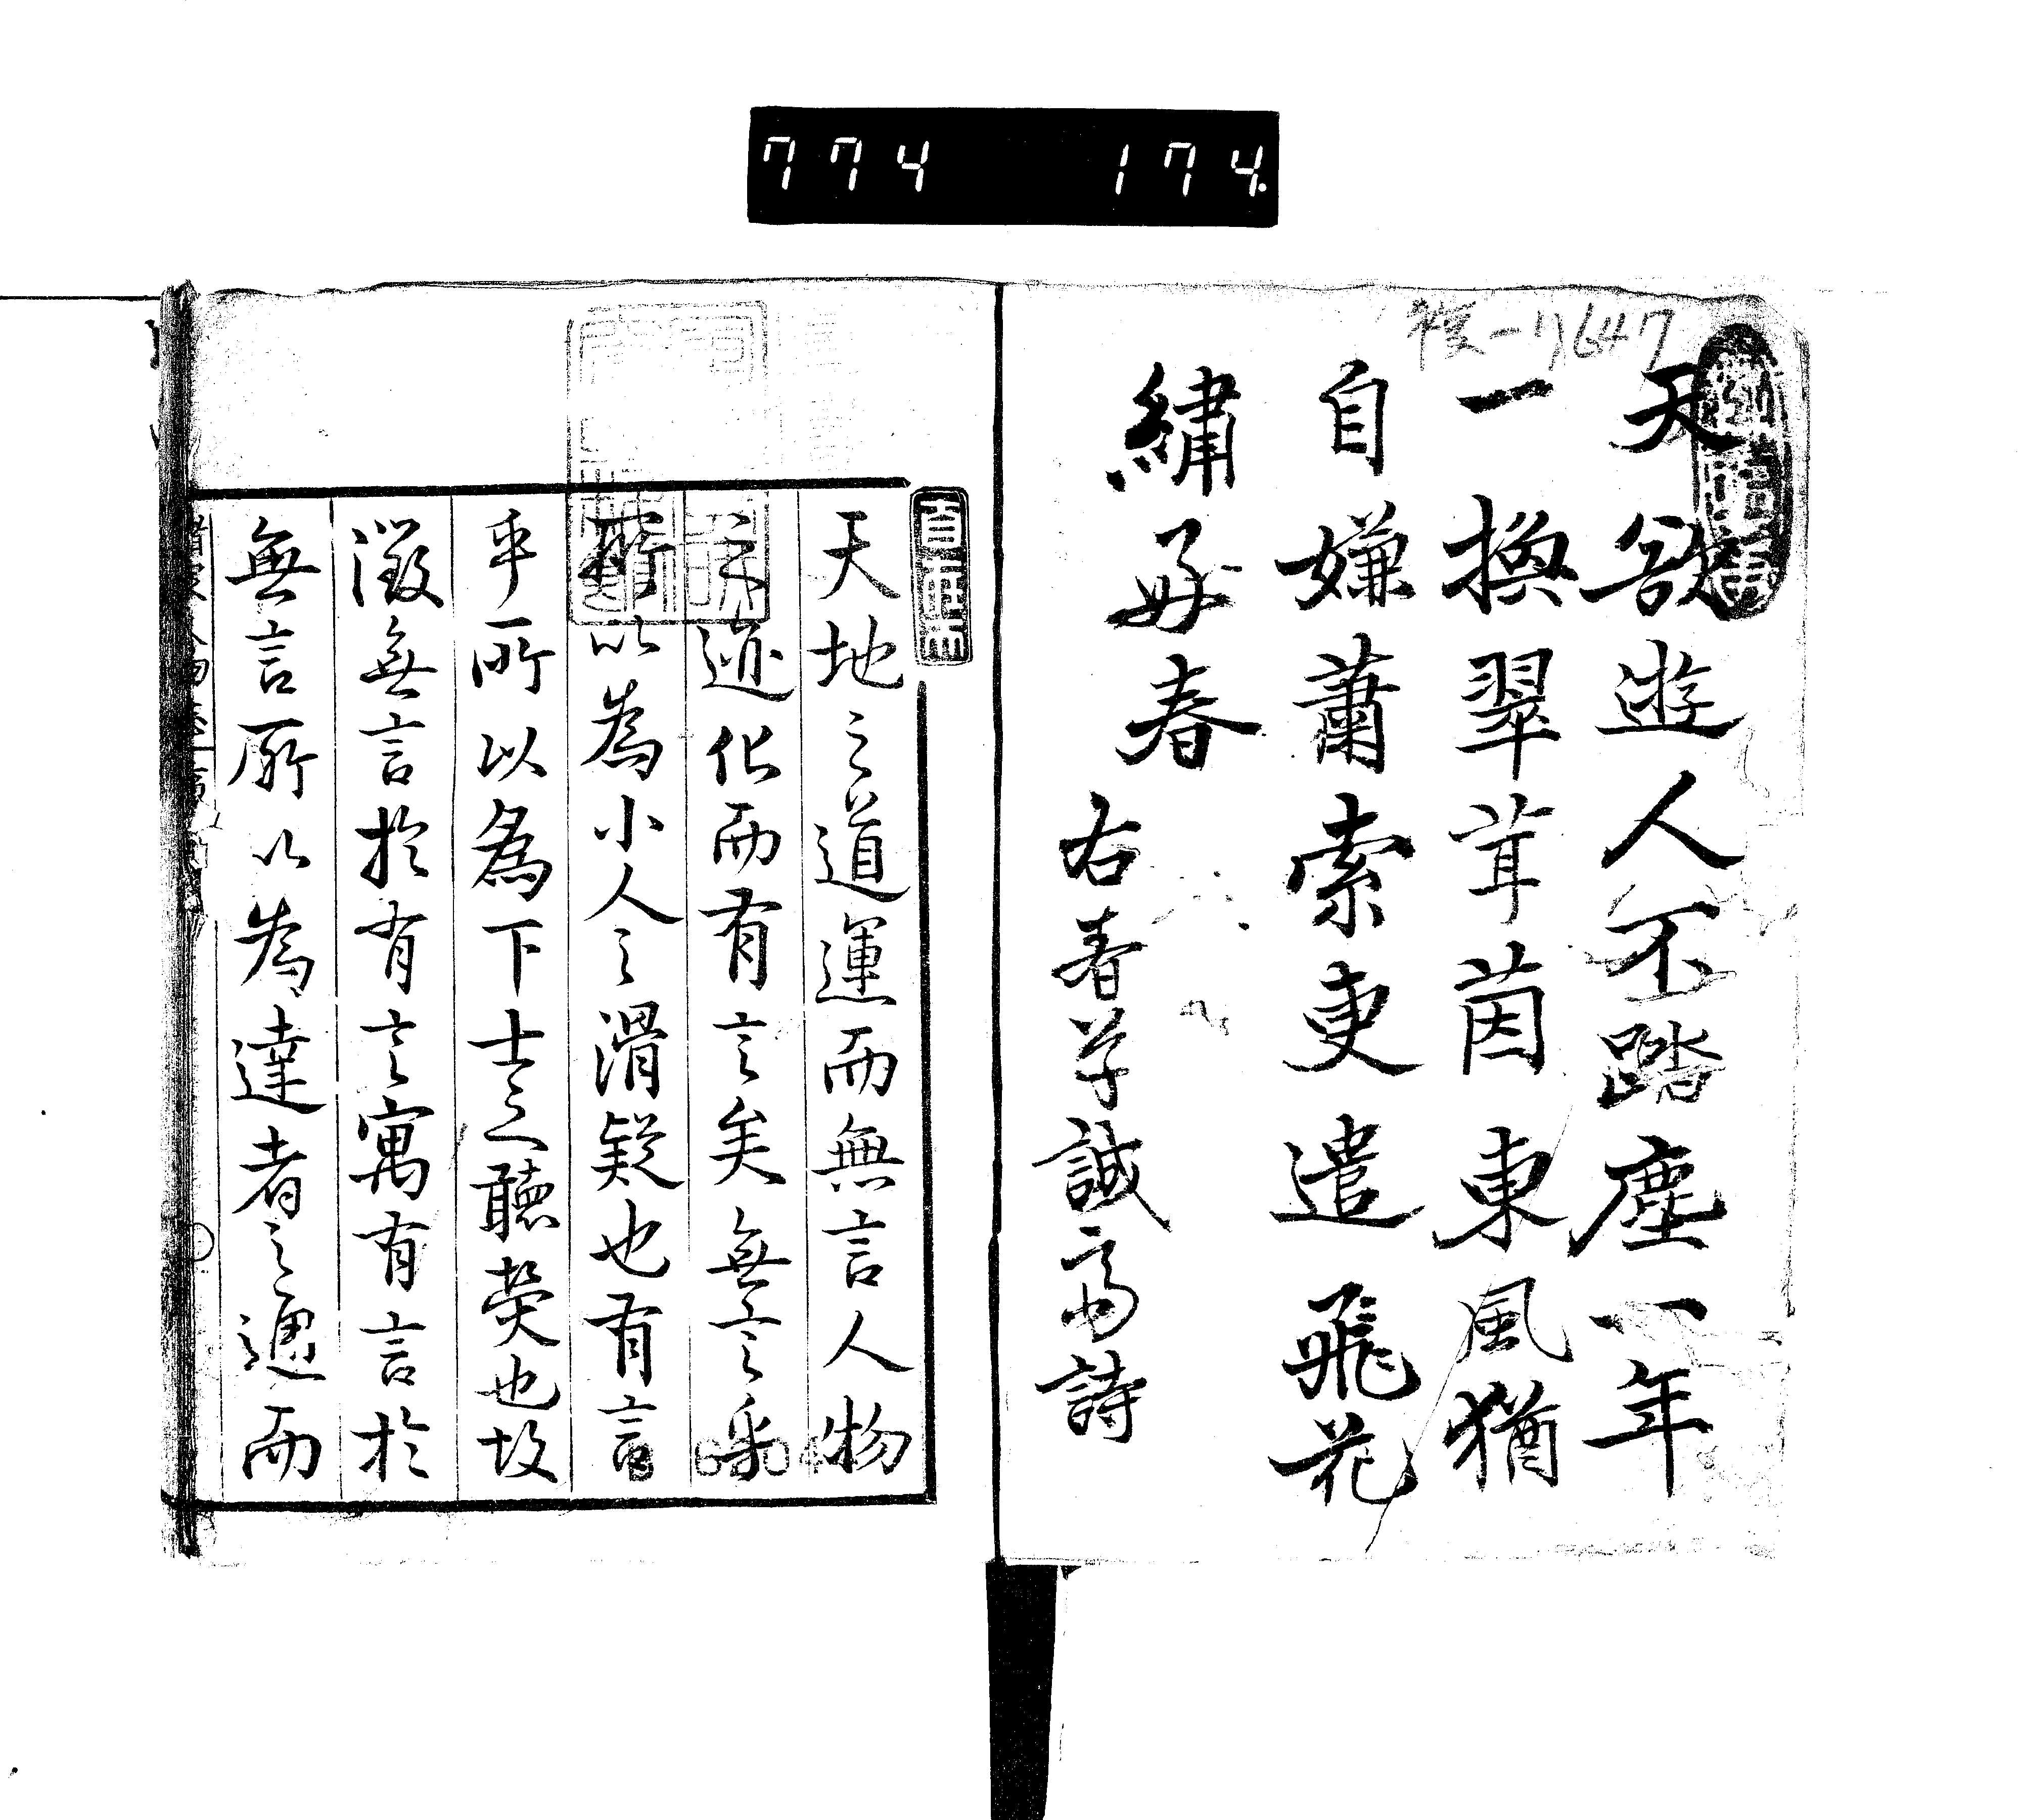 774 174
天欲遊人不踏塵一年
一換翠茸茵東風猶
自嫌蕭索更遣飛花
繡好春
右春草誠齋詩
天地之道運而無言人物
之迹化而有言矣無言乎
所以為小人之滑疑也有言
乎所以為下士之聽熒也故
徵無言於有言寓有言於
無言所以為達者之適而